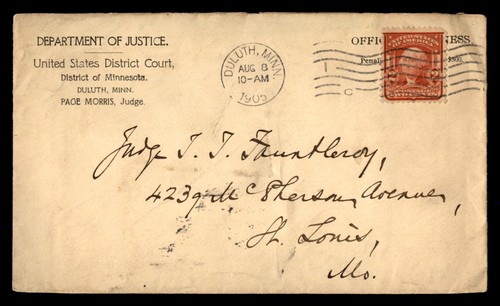 DEPARTMENT OF JUSTICE.
United States District Court,
District of Minnesota.
DULUTH, MINN.
PAGE MORRIS, Judge.
DULUTH, MINN.
AUG 8
10-AM
1905
1
C
Judge T. T. Fauntleroy,
4239 McPherson Avenue,
St. Louis,
Mo.